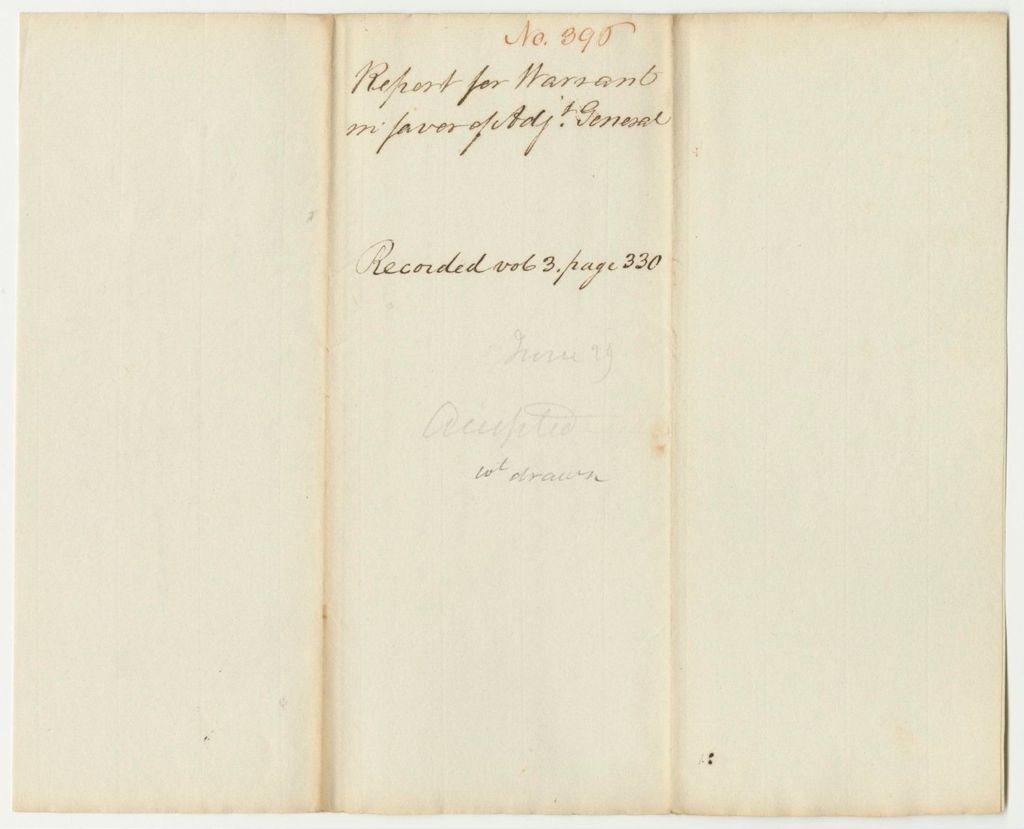 No. 396
Report for Warrant
in favor of Adjt. General
Recorded vol 3. page 330
June 29
Accepted
wt drawn